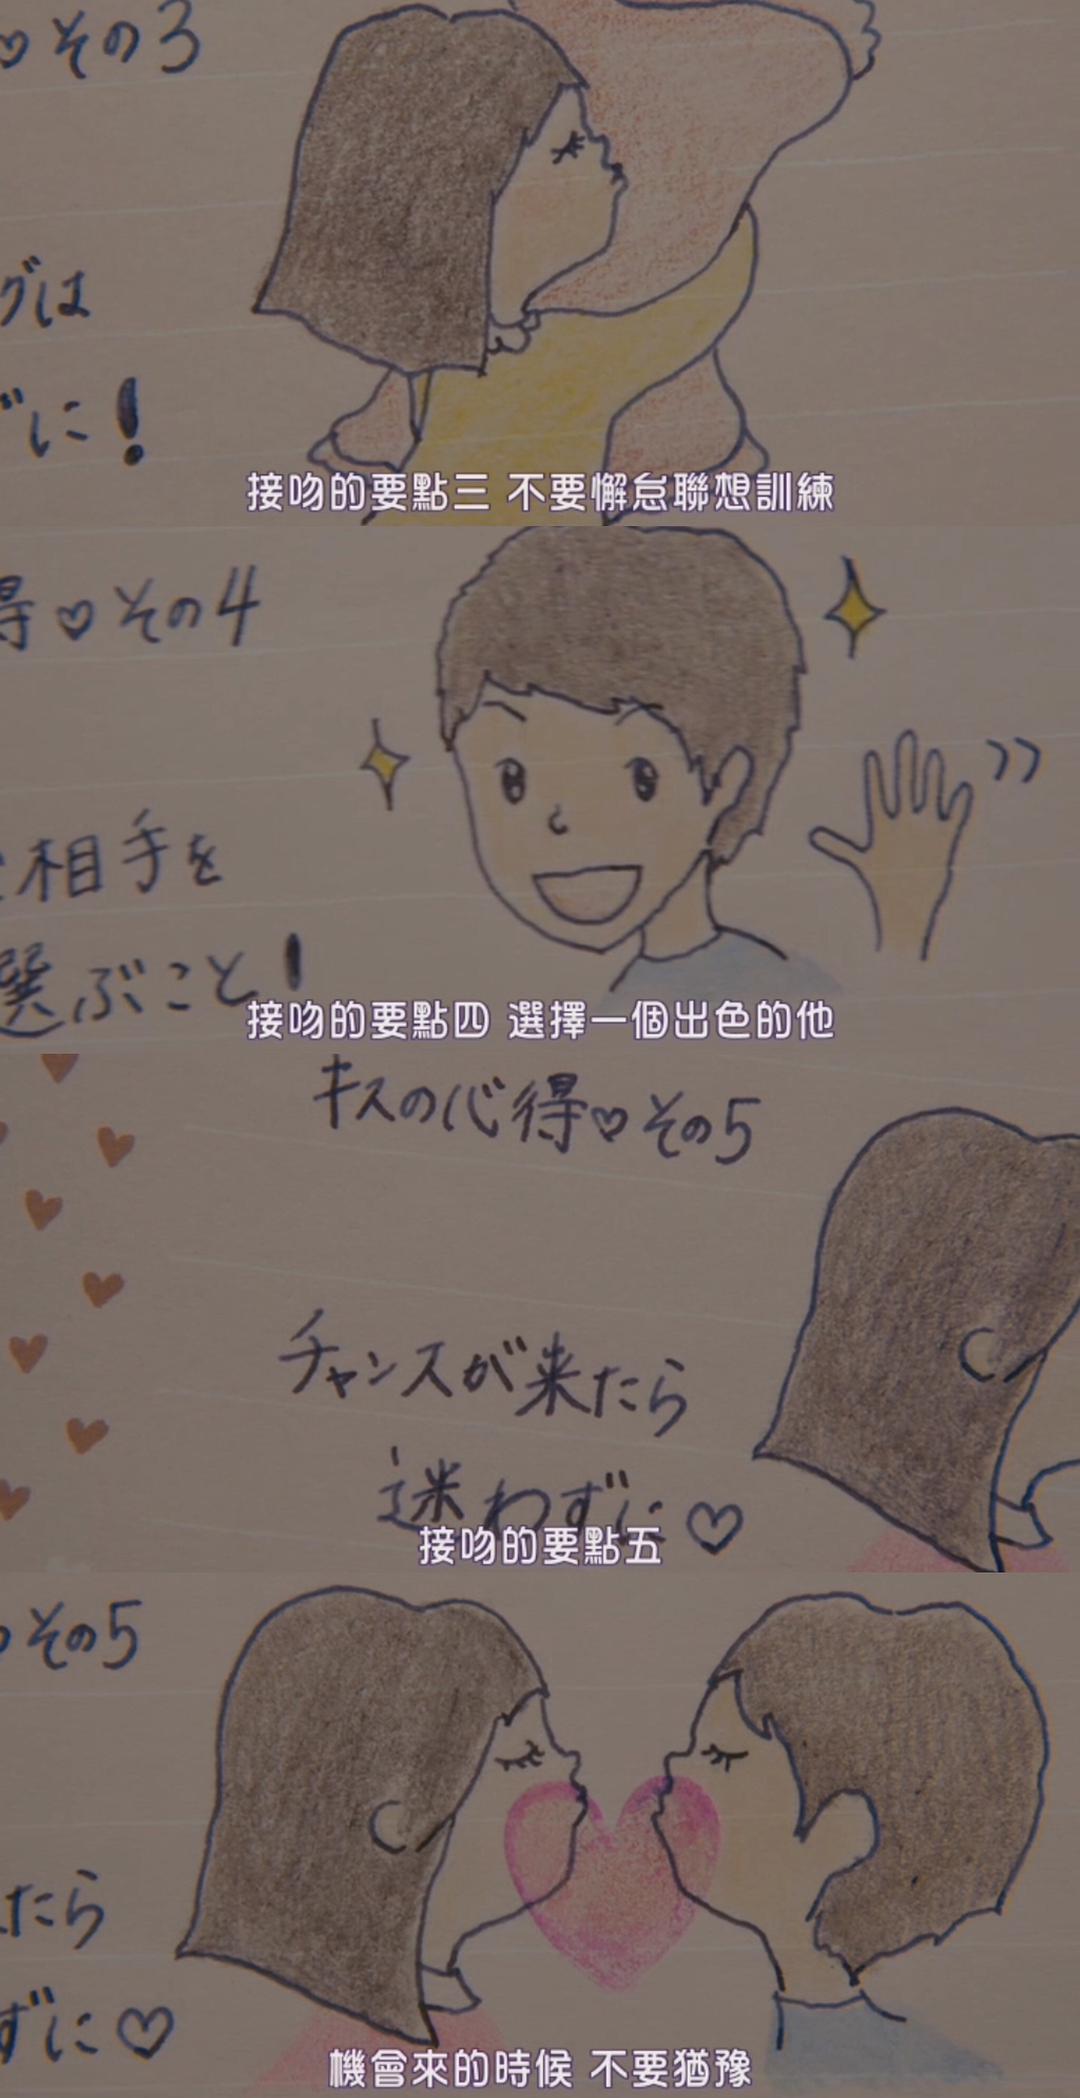 ♡その3
グは
ずに!
接吻的要點三 不要懈怠聯想訓練
得♡その4
相手を
選ぶこと!
接吻的要點四 選擇一個出色的他
キスの心得♡その5
チャンスが来たら
迷わずに♡
接吻的要點五
その5
たら
ずに♡
機會來的時候 不要猶豫